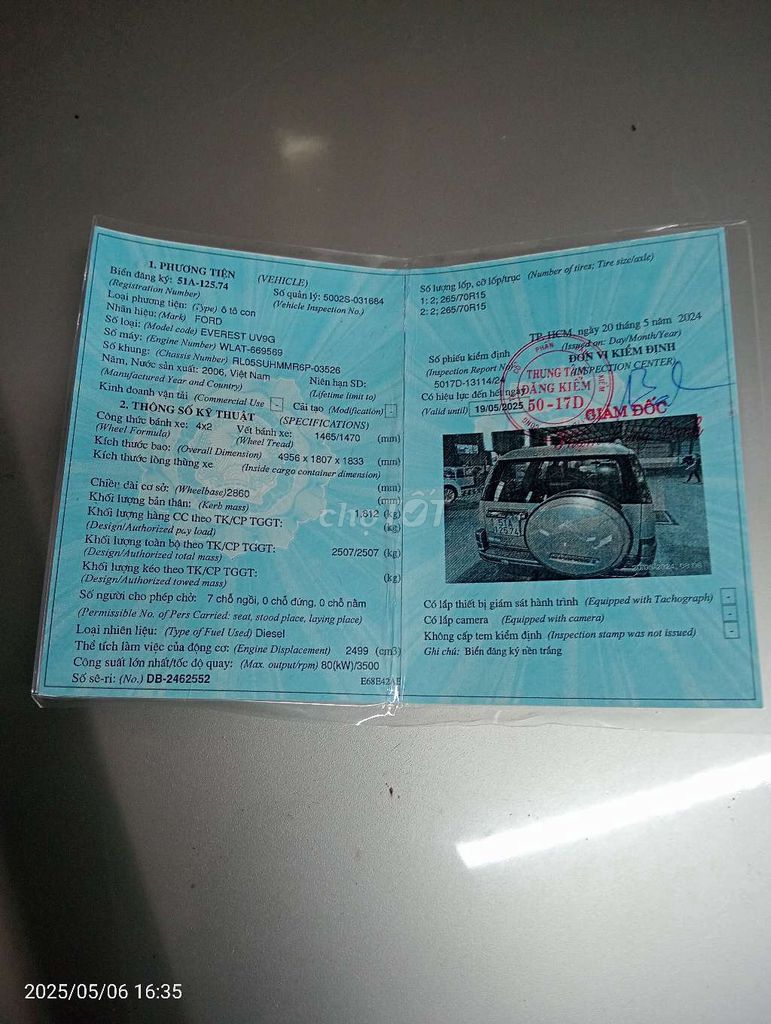 1. PHƯƠNG TIỆN (VEHICLE)
Biển đăng ký: 51A-125.74 Số quản lý: 5002S-031684
(Registration Number) (Vehicle Inspection No.)
Loại phương tiện: (Type) ô tô con
Nhãn hiệu: (Mark) FORD
Số loại: (Model code) EVEREST UV9G
Số máy: (Engine Number) WLAT-669569
Số khung: (Chassis Number) RL05SUHMMR6P-03526
Năm, Nước sản xuất: 2006, Việt Nam Niên hạn SD:
(Manufactured Year and Country) (Lifetime limit to)
Kinh doanh vận tải (Commercial Use - Cải tạo (Modification) -
2. THÔNG SỐ KỸ THUẬT (SPECIFICATIONS)
Công thức bánh xe: 4x2 Vết bánh xe: 1465/1470 (mm)
(Wheel Formula) (Wheel Tread)
Kích thước bao: (Overall Dimension) 4956 x 1807 x 1833 (mm)
Kích thước lòng thùng xe (Inside cargo container dimension)
(mm)
Chiều dài cơ sở: (Wheelbase) 2860 (mm)
Khối lượng bản thân: (Kerb mass) 1,812 (kg)
Khối lượng hàng CC theo TK/CP TGGT:
(Design/Authorized pay load) (kg)
Khối lượng toàn bộ theo TK/CP TGGT: 2507/2507 (kg)
(Design/Authorized total mass)
Khối lượng kéo theo TK/CP TGGT: (kg)
(Design/Authorized towed mass)
Số người cho phép chở: 7 chỗ ngồi, 0 chỗ đứng, 0 chỗ nằm
(Permissible No. of Pers Carried: seat, stood place, laying place)
Loại nhiên liệu: (Type of Fuel Used) Diesel
Thể tích làm việc của động cơ: (Engine Displacement) 2499 (cm3)
Công suất lớn nhất/tốc độ quay: (Max. output/rpm) 80(kW)/3500
Số sê-ri: (No.) DB-2462552
Số lượng lốp, cỡ lốp/trục (Number of tires; Tire size/axle)
1: 2; 265/70R15
2: 2; 265/70R15
TP. HCM, ngày 20 tháng 5 năm 2024
(Issued on: Day/Month/Year)
Số phiếu kiểm định ĐƠN VỊ KIỂM ĐỊNH
(Inspection Report N (INSPECTION CENTER)
5017D-13114/24
Có hiệu lực đến hết ngày
(Valid until) 19/05/2025
TRUNG TÂM
ĐĂNG KIỂM
50-17D
GIÁM ĐỐC
51A
12574
20/05/2024, 08:06
Có lắp thiết bị giám sát hành trình (Equipped with Tachograph) -
Có lắp camera (Equipped with camera) -
Không cấp tem kiểm định (Inspection stamp was not issued) -
Ghi chú: Biển đăng ký nền trắng
chợ TỐT
2025/05/06 16:35